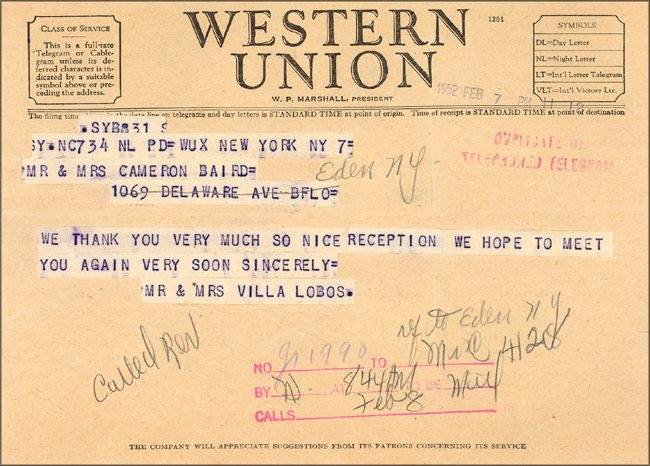 CLASS OF SERVICE
This is a full-rate
Telegram or Cable-
gram unless its de-
ferred character is in-
dicated by a suitable
symbol above or pre-
ceding the address.
WESTERN
UNION
W. P. MARSHALL, PRESIDENT
1201
SYMBOLS
DL=Day Letter
NL=Night Letter
LT=Int'l Letter Telegram
VLT=Int'l Victory Ltr.
1952 FEB 7 PM 11 12
The filing time in the date line on telegrams and day letters is STANDARD TIME at point of origin. Time of receipt is STANDARD TIME at point of destination
SYB031 S
SY·NC734 NL PD=WUX NEW YORK NY 7=
MR & MRS CAMERON BAIRD=
1069 DELAWARE AVE BFLO=
Eden NY
DUPLICATE OF
TELEPHONED TELEGRAM
WE THANK YOU VERY MUCH SO NICE RECEPTION WE HOPE TO MEET
YOU AGAIN VERY SOON SINCERELY=
MR & MRS VILLA LOBOS.
Called
to Eden NY
4128
NO 1990 TO
BY 844 AM TO BE
Feb 8
CALLS
THE COMPANY WILL APPRECIATE SUGGESTIONS FROM ITS PATRONS CONCERNING ITS SERVICE